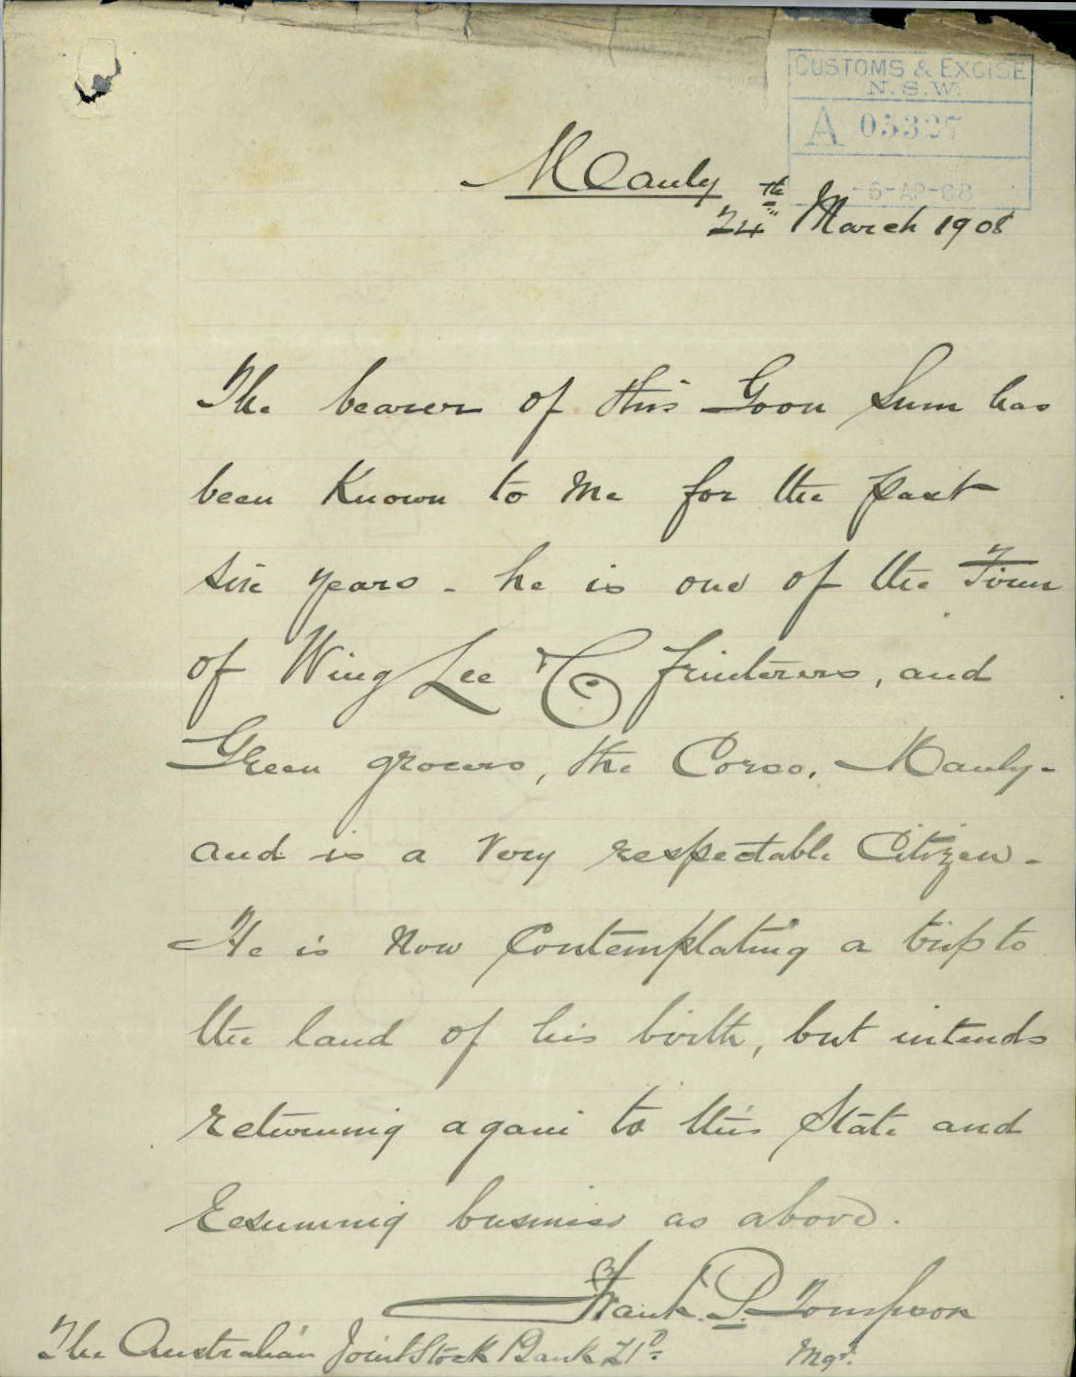 CUSTOMS & EXCISE
N.S.W.
A 05327
-6-AP-08
Manly
24th March 1908
The bearer of this Goon Sum has
been Known to Me for the past
six years - he is one of the Firm
of Wing Lee & Co fruiterers, and
Green grocers, the Corso, Manly -
and is a very respectable Citizen -
He is Now Contemplating a trip to
the land of his birth, but intends
returning again to this State and
Resuming business as above.
Frank. P. Tompson
The Australian Joint Stock Bank Ltd. Mgr.